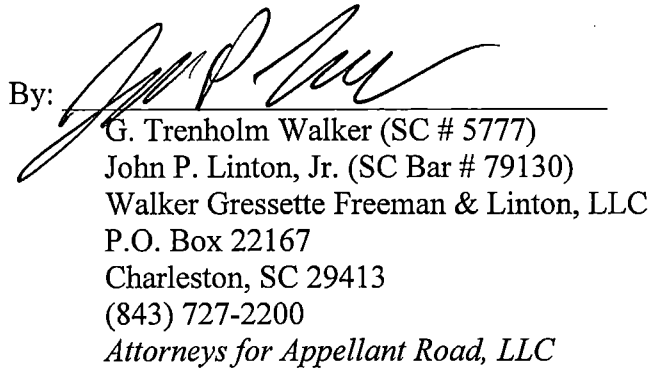 By:
G. Trenholm Walker (SC # 5777)
John P. Linton, Jr. (SC Bar # 79130)
Walker Gressette Freeman & Linton, LLC
P.O. Box 22167
Charleston, SC 29413
(843) 727-2200
Attorneys for Appellant Road, LLC